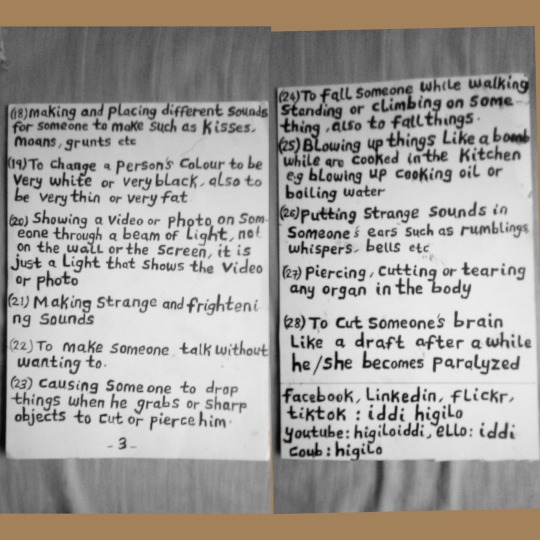 (18) making and placing different sounds
for someone to make such as kisses,
moans, grunts etc
(19) To change a person's colour to be
very white or very black, also to
be very thin or very fat
(20) Showing a video or photo on som-
eone through a beam of light, not
on the wall or the screen, it is
just a light that shows the video
or photo
(21) Making strange and frighteni
ng sounds
(22) To make someone talk without
wanting to.
(23) Causing someone to drop
things when he grabs or sharp
objects to cut or pierce him.
-3-
(24) To fall someone while walking
standing or climbing on some-
thing, also to fall things.
(25) Blowing up things like a bomb
while are cooked in the kitchen
e.g blowing up cooking oil or
boiling water
(26) Putting strange sounds in
someone's ears such as rumblings
whispers, bells etc
(27) Piercing, cutting or tearing
any organ in the body
(28) To cut someone's brain
like a draft after a while
he/she becomes paralyzed
facebook, linkedin, flickr,
tiktok : iddi higilo
youtube: higiloiddi, ello: iddi
coub: higilo